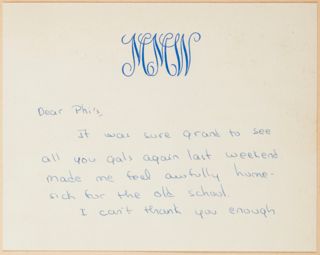 MMW
Dear Phi's,
It was sure grand to see
all you gals again last weekend
made me feel awfully home-
sick for the old school.
I can't thank you enough